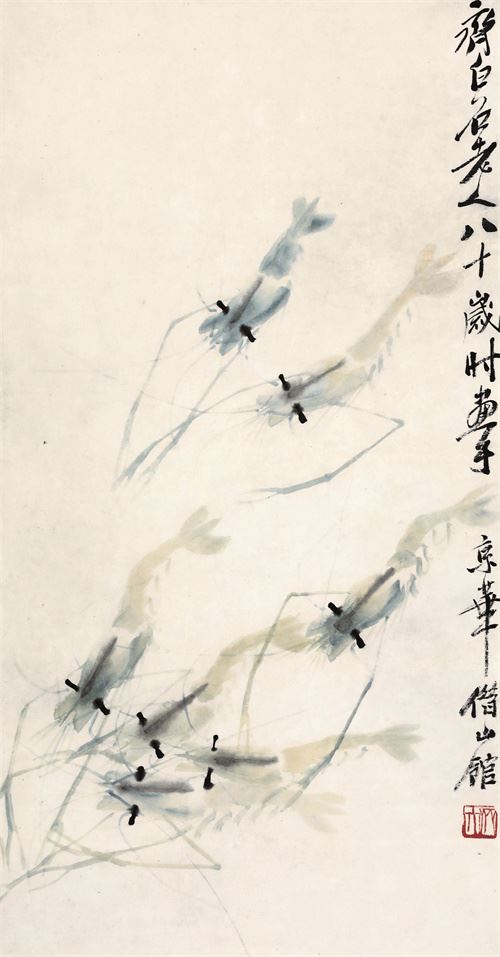 齊白石老人八十歲时畫于京華借山館